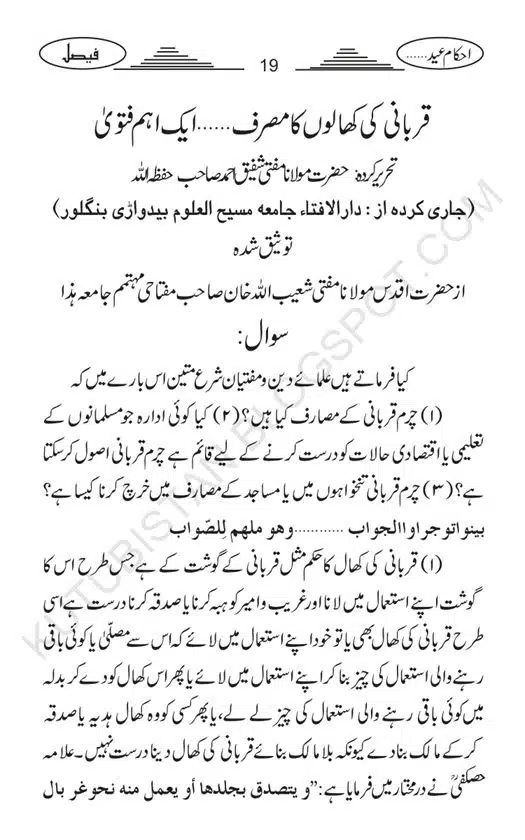 احکام عید......
19
فیصل
قربانی کی کھالوں کا مصرف......ایک اہم فتویٰ
تحریر کردہ: حضرت مولانا مفتی شفیق احمد صاحب حفظہ اللہ
(جاری کردہ از: دارالافتاء جامعہ مسیح العلوم بیدواڑی بنگلور)
توثیق شدہ
از حضرت اقدس مولانا مفتی شعیب اللہ خان صاحب مفتاحی مہتمم جامعہ ہذا
سوال:
کیا فرماتے ہیں علمائے دین و مفتیان شرع متین اس بارے میں کہ
(۱) چرم قربانی کے مصارف کیا ہیں؟ (۲) کیا کوئی ادارہ جو مسلمانوں کے
تعلیمی یا اقتصادی حالات کو درست کرنے کے لیے قائم ہے چرم قربانی اصول کرسکتا
ہے؟ (۳) چرم قربانی تنخواہوں میں یا مساجد کے مصارف میں خرچ کرنا کیسا ہے؟
بینواتوجراواالجواب ............وهو ملهم لِلصّواب
(۱) قربانی کی کھال کا حکم مثل قربانی کے گوشت کے ہے جس طرح اس کا
گوشت اپنے استعمال میں لانا اور غریب و امیر کو ہبہ کرنا یا صدقہ کرنا درست ہے اسی
طرح قربانی کی کھال بھی یا تو خود اپنے استعمال میں لائے کہ اس سے مصلّیٰ یا کوئی باقی
رہنے والی استعمال کی چیز بنا کر اپنے استعمال میں لائے یا پھر اس کھال کو دے کر بدلہ
میں کوئی باقی رہنے والی استعمال کی چیز لے لے، یا پھر کسی کو وہ کھال ہدیہ یا صدقہ
کر کے مالک بنا دے کیونکہ بلا مالک بنائے قربانی کی کھال دینا درست نہیں۔ علامہ
حصکفیؒ نے درمختار میں فرمایا ہے: ”و یتصدق بجلدها أو یعمل منه نحو غر بال
KUTUBISTAN.BLOGSPOT.COM